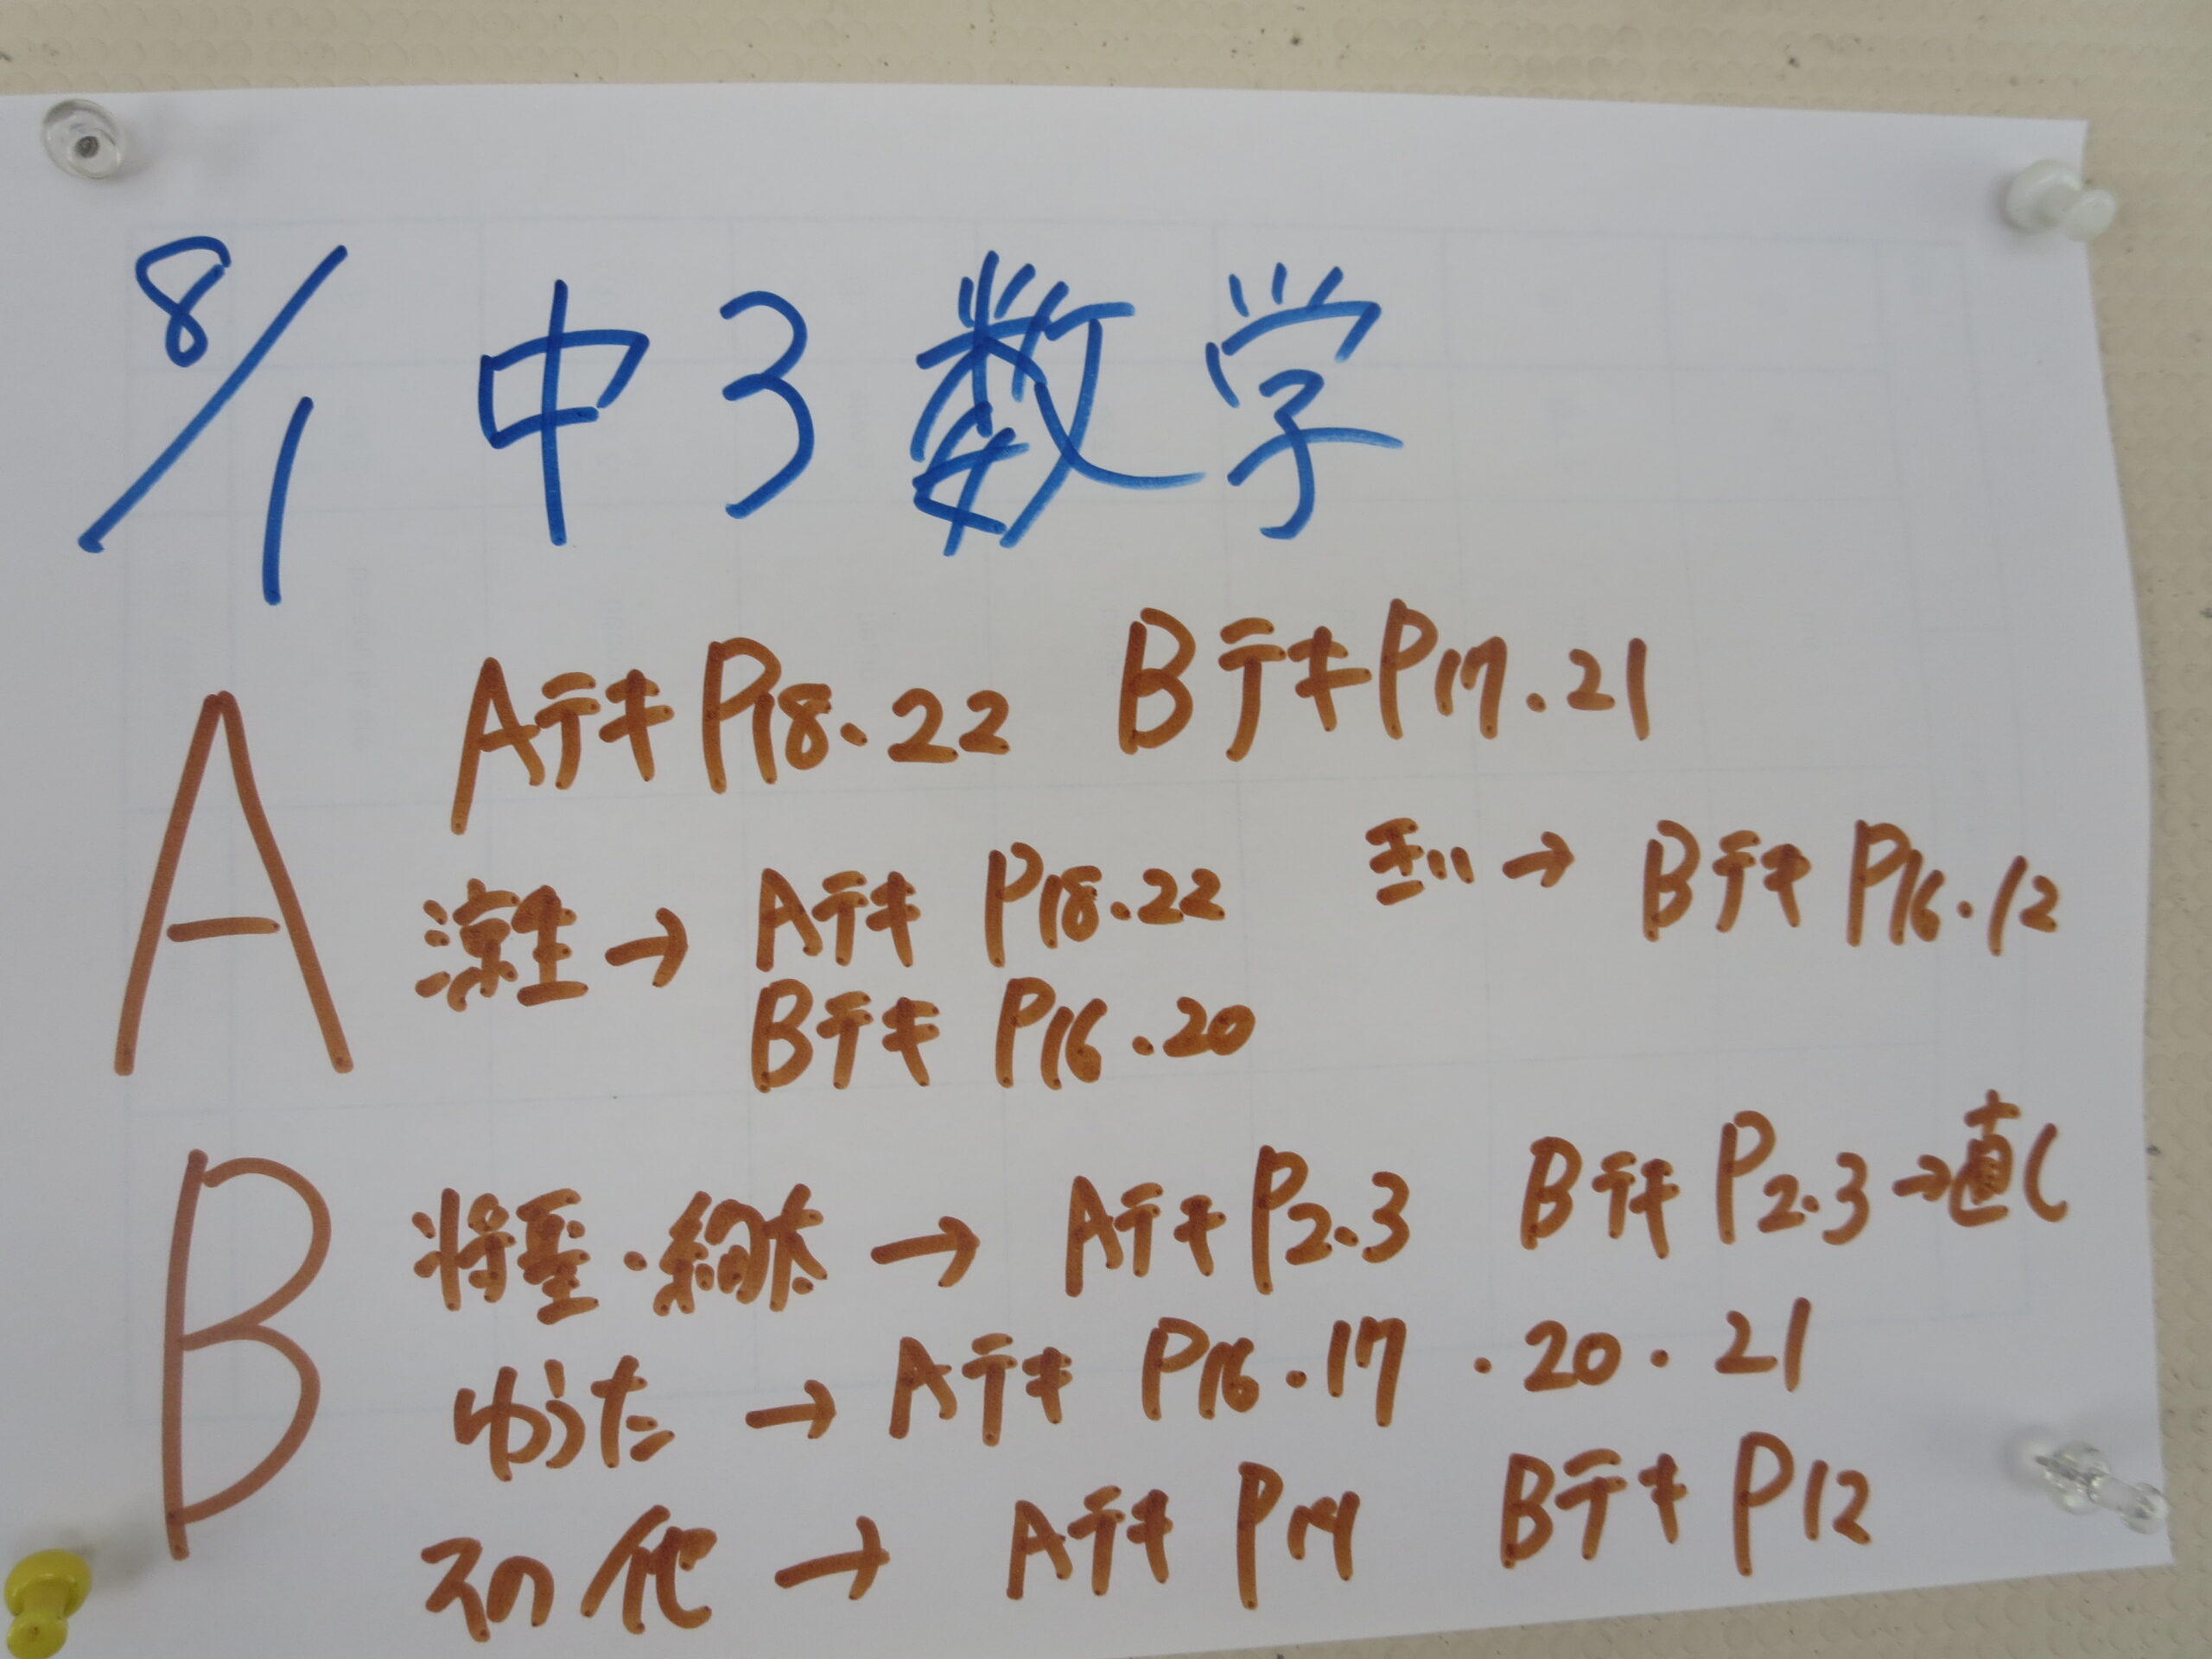 8/1 中3数学
A
Aテキ P18.22 Bテキ P17.21
涼生→Aテキ P18.22
Bテキ P16.20
→Bテキ P16.12
B
将聖・絢太→Aテキ P2.3 Bテキ P2.3→直し
ゆうた→Aテキ P16.17・20・21
その他→Aテキ P14 Bテキ P12